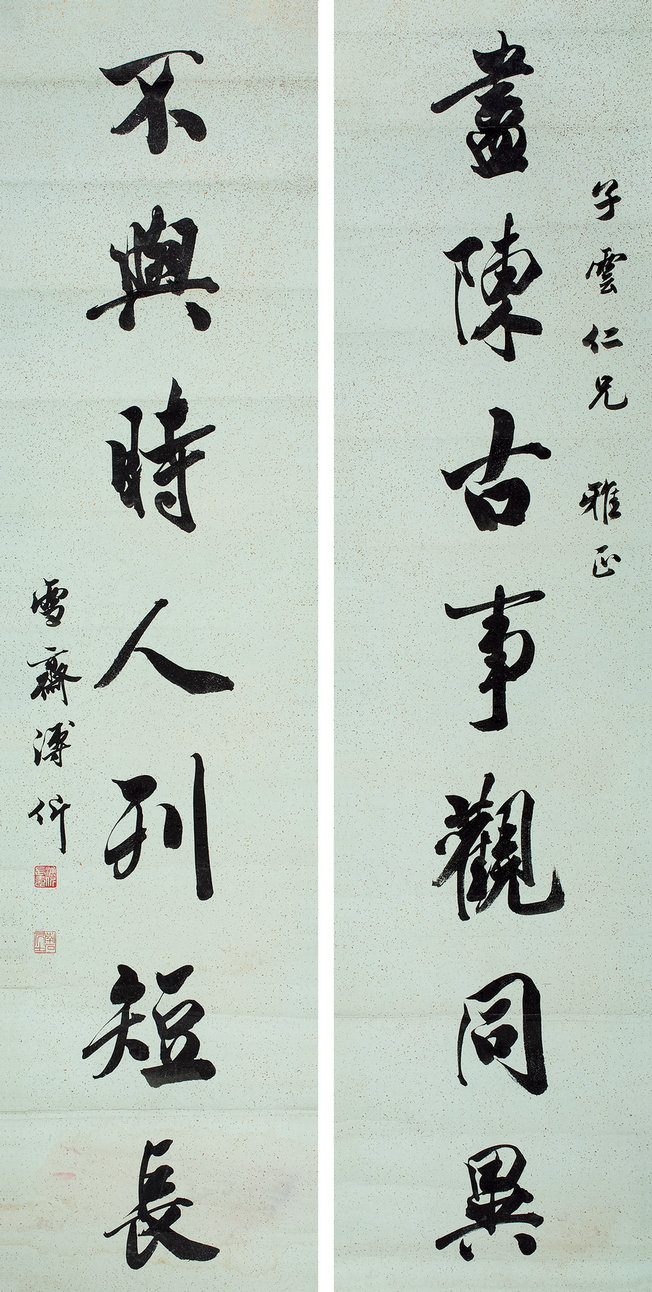 子雲仁兄 雅正
盡陳古事觀同異
不與時人刊短長
雪齋溥伒